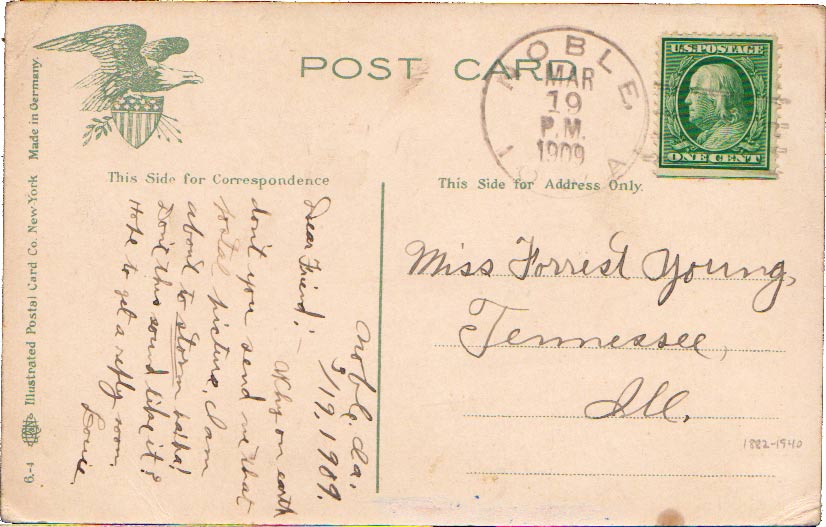 POST CARD
NOBLE,
MAR
19
P.M.
1909
IOWA
U.S. POSTAGE
ONE CENT
This Side for Correspondence
This Side for Address Only.
Noble, Ia.
3/19, 1909.
Dear Friend:-
Why on earth
don't you send me that
postal picture. I am
about to storm ha ha!
Don't this sound like it?
Hope to get a reply soon.
Miss Forrest Young,
Tennessee,
Ill.
1882-1940
6.-4 Illustrated Postal Card Co. New-York Made in Germany.